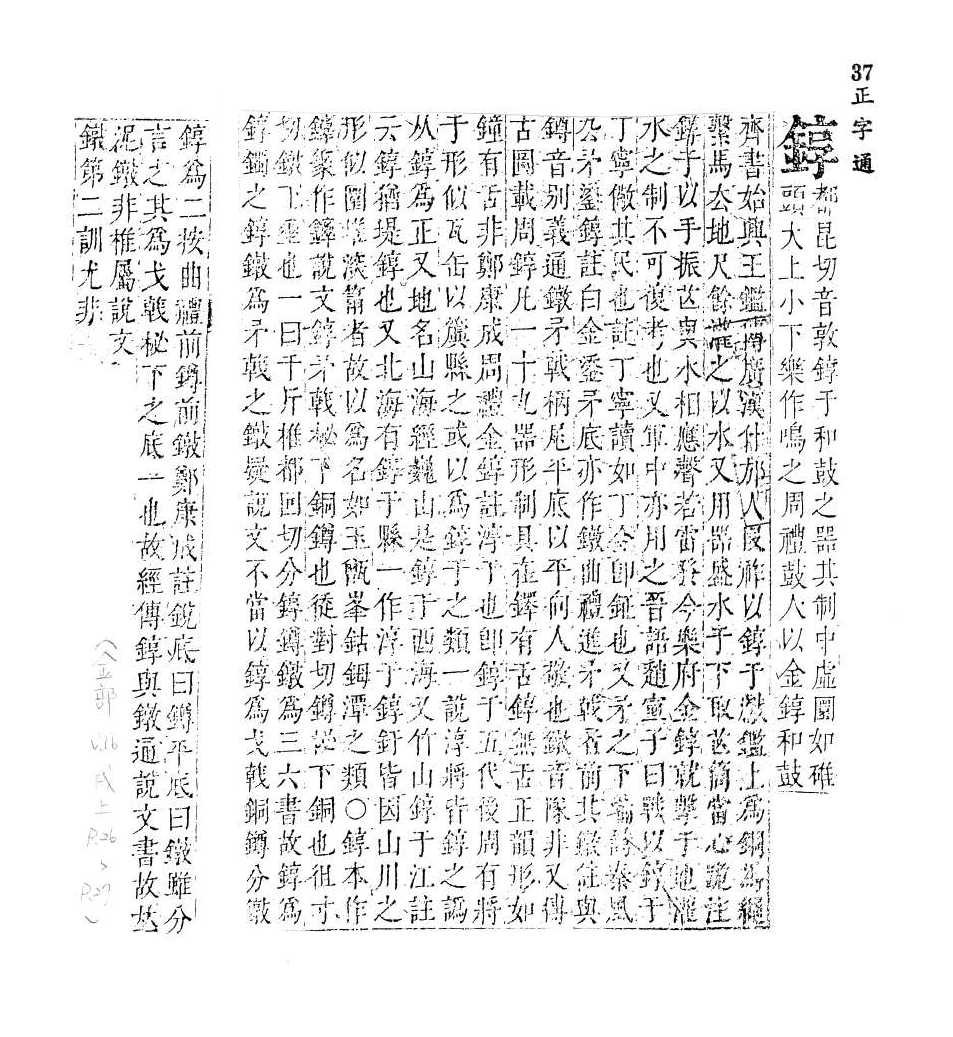 37
正字通
錞
都昆切音敦錞于和鼓之器其制中虛圜如碓
頭大上小下樂作鳴之周禮鼓人以金錞和鼓
齊書始興王鑑廣漢什邡人段祚以錞于獻鑑上爲銅馬繩
繫馬去地尺餘灌之以水又用器盛水于下取芒筒當心跪注
錞于以手振芒與水相應聲若雷發今樂府金錞就擊于地灌
水之制不可復考也又軍中亦用之晉語趙宣子曰戰以錞于
丁寧儆其民也註丁寧讀如丁令卽鉦也又矛之下端詩秦風
厹矛鋈錞註白金鋈矛底亦作鐓曲禮進矛戟者前其鐓註與
鐏音别義通鐓矛戟柄尾平底以平向人敬也鐓音隊非又傳
古圖載周錞凡一十九器形制具在鐸有舌錞無舌正韻形如
鐘有舌非鄭康成周禮金錞註淳于也卽錞于五代後周有將
于形似瓦缶以廣縣之或以爲錞于之類一說淳將皆錞之譌
从錞爲正又地名山海經巍山是錞于西海又竹山錞于江註
云錞猶堤錞也又北海有錞于縣一作淳于錞釪皆因山川之
形似圍淡簫者故以爲名如玉甑峯鈷鉧潭之類〇錞本作
錞篆作鐸說文錞矛戟柲下銅鐏也從對切鐏柲下銅也徂寸
切鐓下垂也一曰千斤椎都回切分錞鐏鐓爲三六書故錞爲
錞鐲之錞鐓爲矛戟之鐓疑說文不當以錞爲戈戟銅鐏分鐓
錞爲二按曲禮前鐏前鐓鄭康成註銳底曰鐏平底曰鐓雖分
言之其爲戈戟柲下之底一也故經傳錞與鐓通說文書故以
況鐓非椎屬說文
鐓第二訓尤非
(金部 v.16 戌上 P.26、P.27)